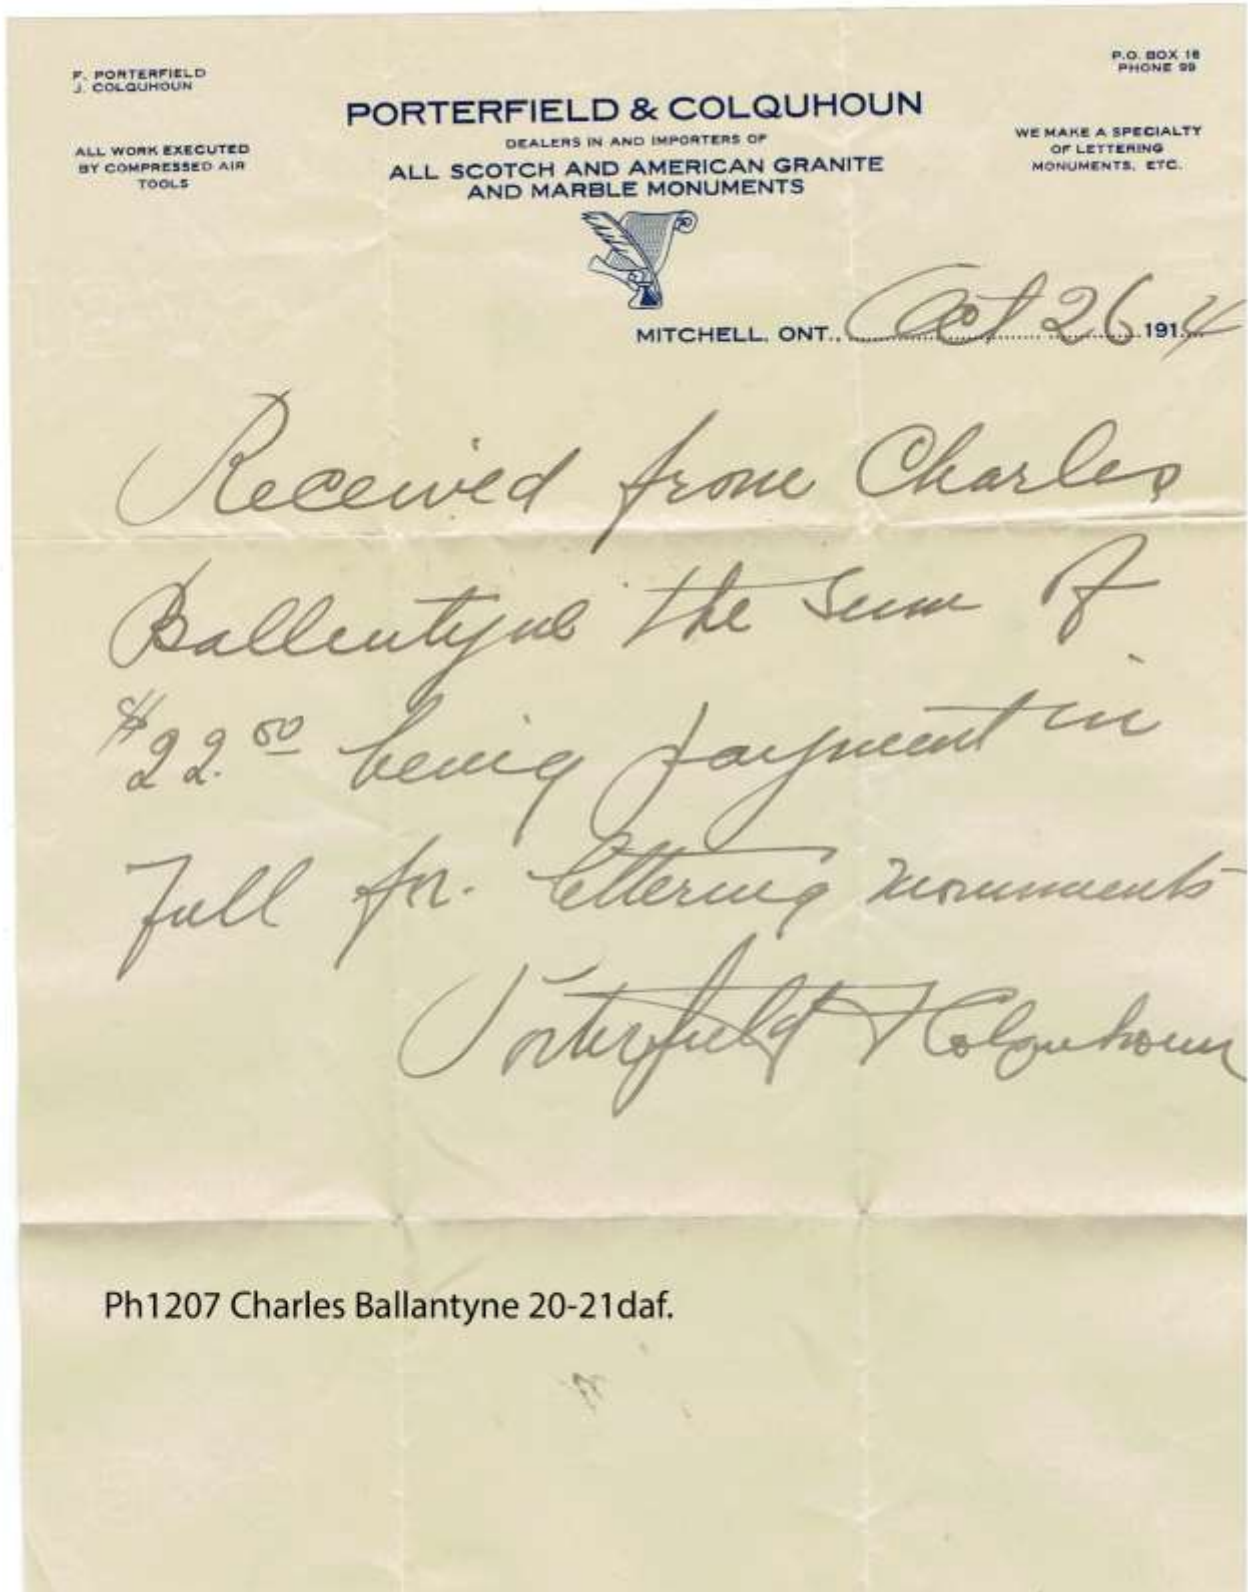 F. PORTERFIELD
J. COLQUHOUN
P.O. BOX 18
PHONE 99
PORTERFIELD & COLQUHOUN
DEALERS IN AND IMPORTERS OF
ALL SCOTCH AND AMERICAN GRANITE
AND MARBLE MONUMENTS
ALL WORK EXECUTED
BY COMPRESSED AIR
TOOLS
WE MAKE A SPECIALTY
OF LETTERING
MONUMENTS, ETC.
MITCHELL, ONT., Oct 26 1914
Received from Charles
Ballentyne the sum of
$22.00 being payment in
Full for lettering monuments
Porterfield & Colquhoun
Ph1207 Charles Ballantyne 20-21daf.